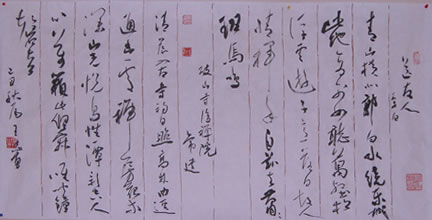 送友人 李白
青山横北郭白水绕东城
此地一为别孤蓬万里征
浮云游子意落日故人
情挥手自兹去萧萧
班马鸣
破山寺后禅院
常建
清晨入古寺初日照高林曲径
通幽处禅房花木
深山光悦鸟性潭影空人
心万籁此俱寂唯闻钟
磬音